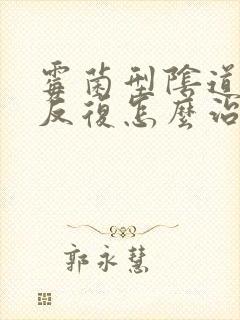 霉菌型陰道
反復怎麼治
郭永慧